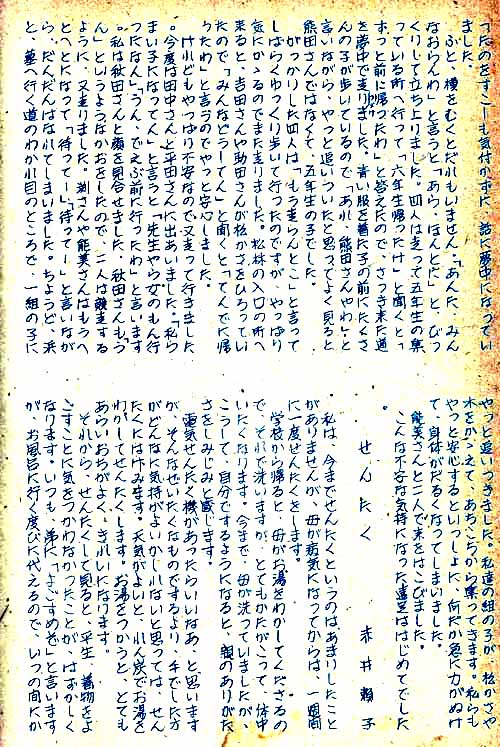 ったのをすこーも気付かずに、話に夢中になってい
ました。
ふと、横をむくとだれもいません。「あんた、みん
なおらんわ」と言うと「あら、ほんとだ」と、びっ
くりして立ち上りました。四人は走って五年生の集
っている所へ行って「六年生帰ったけ」と聞くと「
ずっと前に帰ったわ」と答えたので、さっき来た道
を夢中で走りました。青い服を着た子の前にたくさ
んの子が歩いているので「あれ、熊田さんやわ」と
言いながら、やっと追いついたと思ってよく見ると
熊田さんではなくて、五年生の子でした。
がっかりした四人は「もう走らんとこ」と言って
しばらくゆっくり歩いて行ったのですが、やっぱり
気にかゝるのでまた走りました。松林の入口の所へ
来ると、吉田さんや助田さんが松かさをひろってい
たので「みんなどうしてん」と聞くと「てんでに帰
ったわ」と言うのでやっと安心しました。
けれどもやっぱり不安なので又走って行きました
。今度は田中さんと平田さんに出あいました。「私ら
まい子になってん」と言うと「先生やら女のもん行
ったなん」「うん、でえぶ前に行ったわ」と言います
。私は秋田さんと顔を見合せました。秋田さんも「う
ん」というようなかおをしたので、二人は競走する
ように、又走りました。渕さんや能美さんはもうへ
とへとになって「待ってー」「待ってー」と言いなが
ら、だんだんはなれてしまいました。ちょうど、浜
と、墓へ行く道のわかれ目のところで、一組の子に
やっと追いつきました。私達の組の子が、松かさや
木をかゝえて、あちこちから集ってきます。私らも
やっと安心するといっしょに、何だか急に力がぬけ
て、身体がだるくなってしまいました。
能美さんと二人で木をはこびました。
こんな不安な気持になった遠足ははじめてでした
。
せんたく　赤井頼子
私は、今までせんたくというのはあまりしたこと
がありませんが、母が病気になってからは、一週間
に一度せんたくをします。
学校から帰ると、母がお湯をわかしてくださるの
で、それで洗いますが、とてもかたがこって、体中
いたくなります。今まで、母が洗っていましたが、
こうして、自分でするようになると、親のありがた
さをしみじみと感じます。
電気せんたく機があったらいいなあ、と思います
が、そんなぜいたくなものでするより、手でした方
がどんなに気持がよいかしれないと思っては、せん
たくにはげみます。天気がよいと、れん炭でお湯を
わかしてせんたくします。お湯をつかうと、とても
あらいおちがよく、きれいになります。
それから、せんたくして見ると、平生、着物をよ
ごすことに気をつかわなかったことが、はずかしく
なります。いつも、弟に「よごすめぞ」と言います
が、お風呂に行く度びに代えるので、いつの間にか